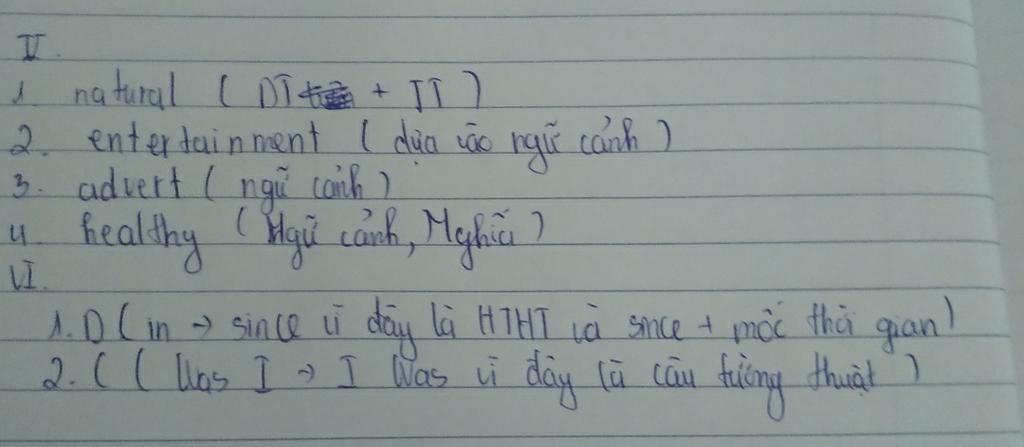 V.
1. natural ( DT + TT )
2. entertainment ( dựa vào ngữ cảnh )
3. advert ( ngữ cảnh )
4. healthy ( Ngữ cảnh, Nghĩa )
VI.
1. D ( in → since vì đây là HTHT và since + mốc thời gian )
2. C ( Was I → I Was vì đây là câu tường thuật )